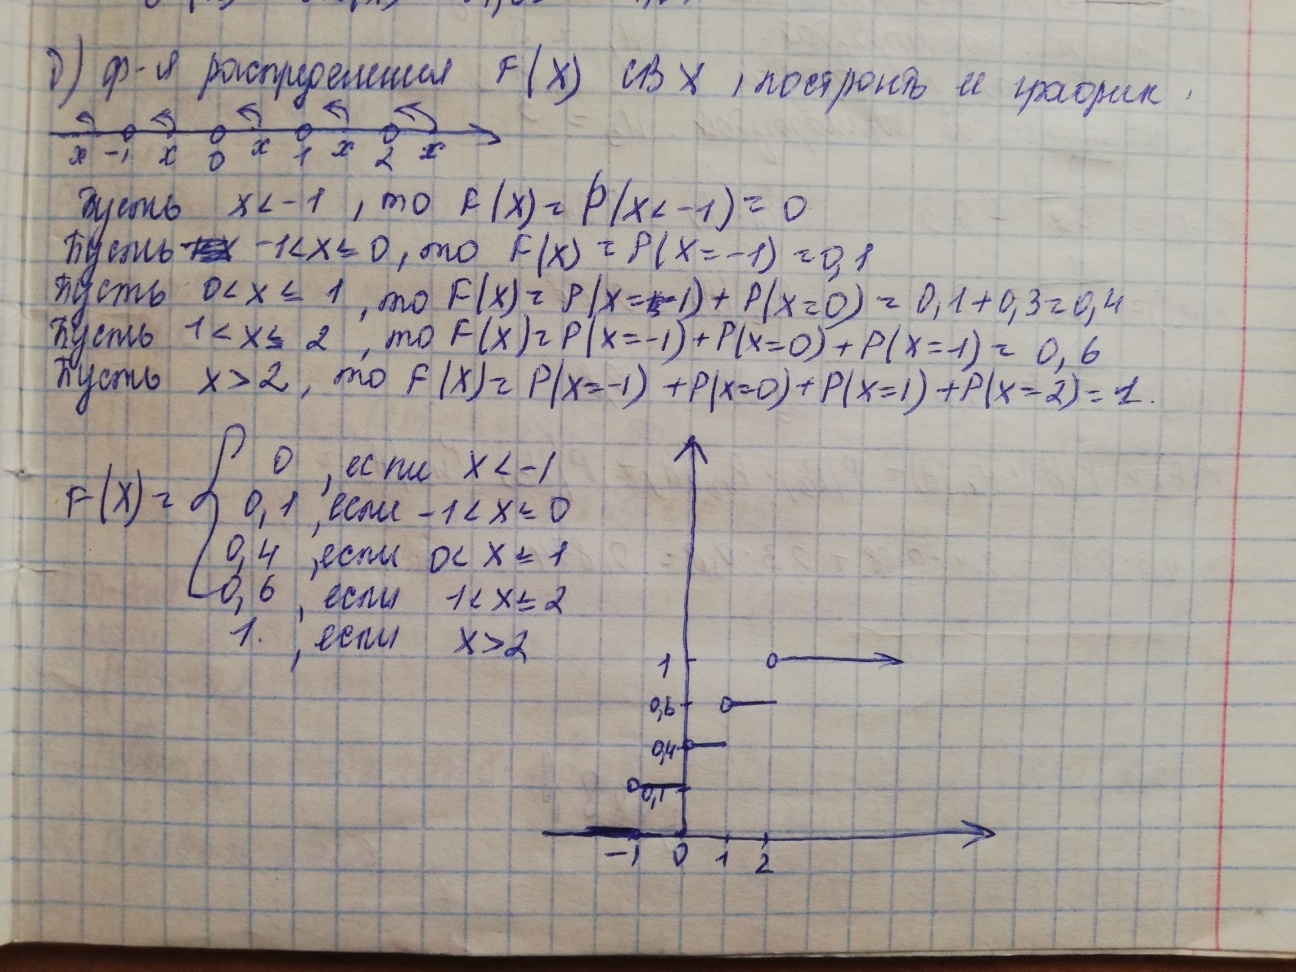 д) ф-я распределения F(X) СВ X, построить и график.
x -1 x 0 x 1 x 2 x
Пусть x < -1, то F(X) = P(X < -1) = 0
Пусть -1 < x ≤ 0, то F(X) = P(X = -1) = 0,1
Пусть 0 < x ≤ 1, то F(X) = P(X = -1) + P(X = 0) = 0,1 + 0,3 = 0,4
Пусть 1 < x ≤ 2, то F(X) = P(X = -1) + P(X = 0) + P(X = 1) = 0,6
Пусть x > 2, то F(X) = P(X = -1) + P(X = 0) + P(X = 1) + P(X = 2) = 1.
F(X) = { 0, если x < -1
0,1, если -1 < x ≤ 0
0,4, если 0 < x ≤ 1
0,6, если 1 < x ≤ 2
1., если x > 2
1
0,6
0,4
0,1
-1 0 1 2